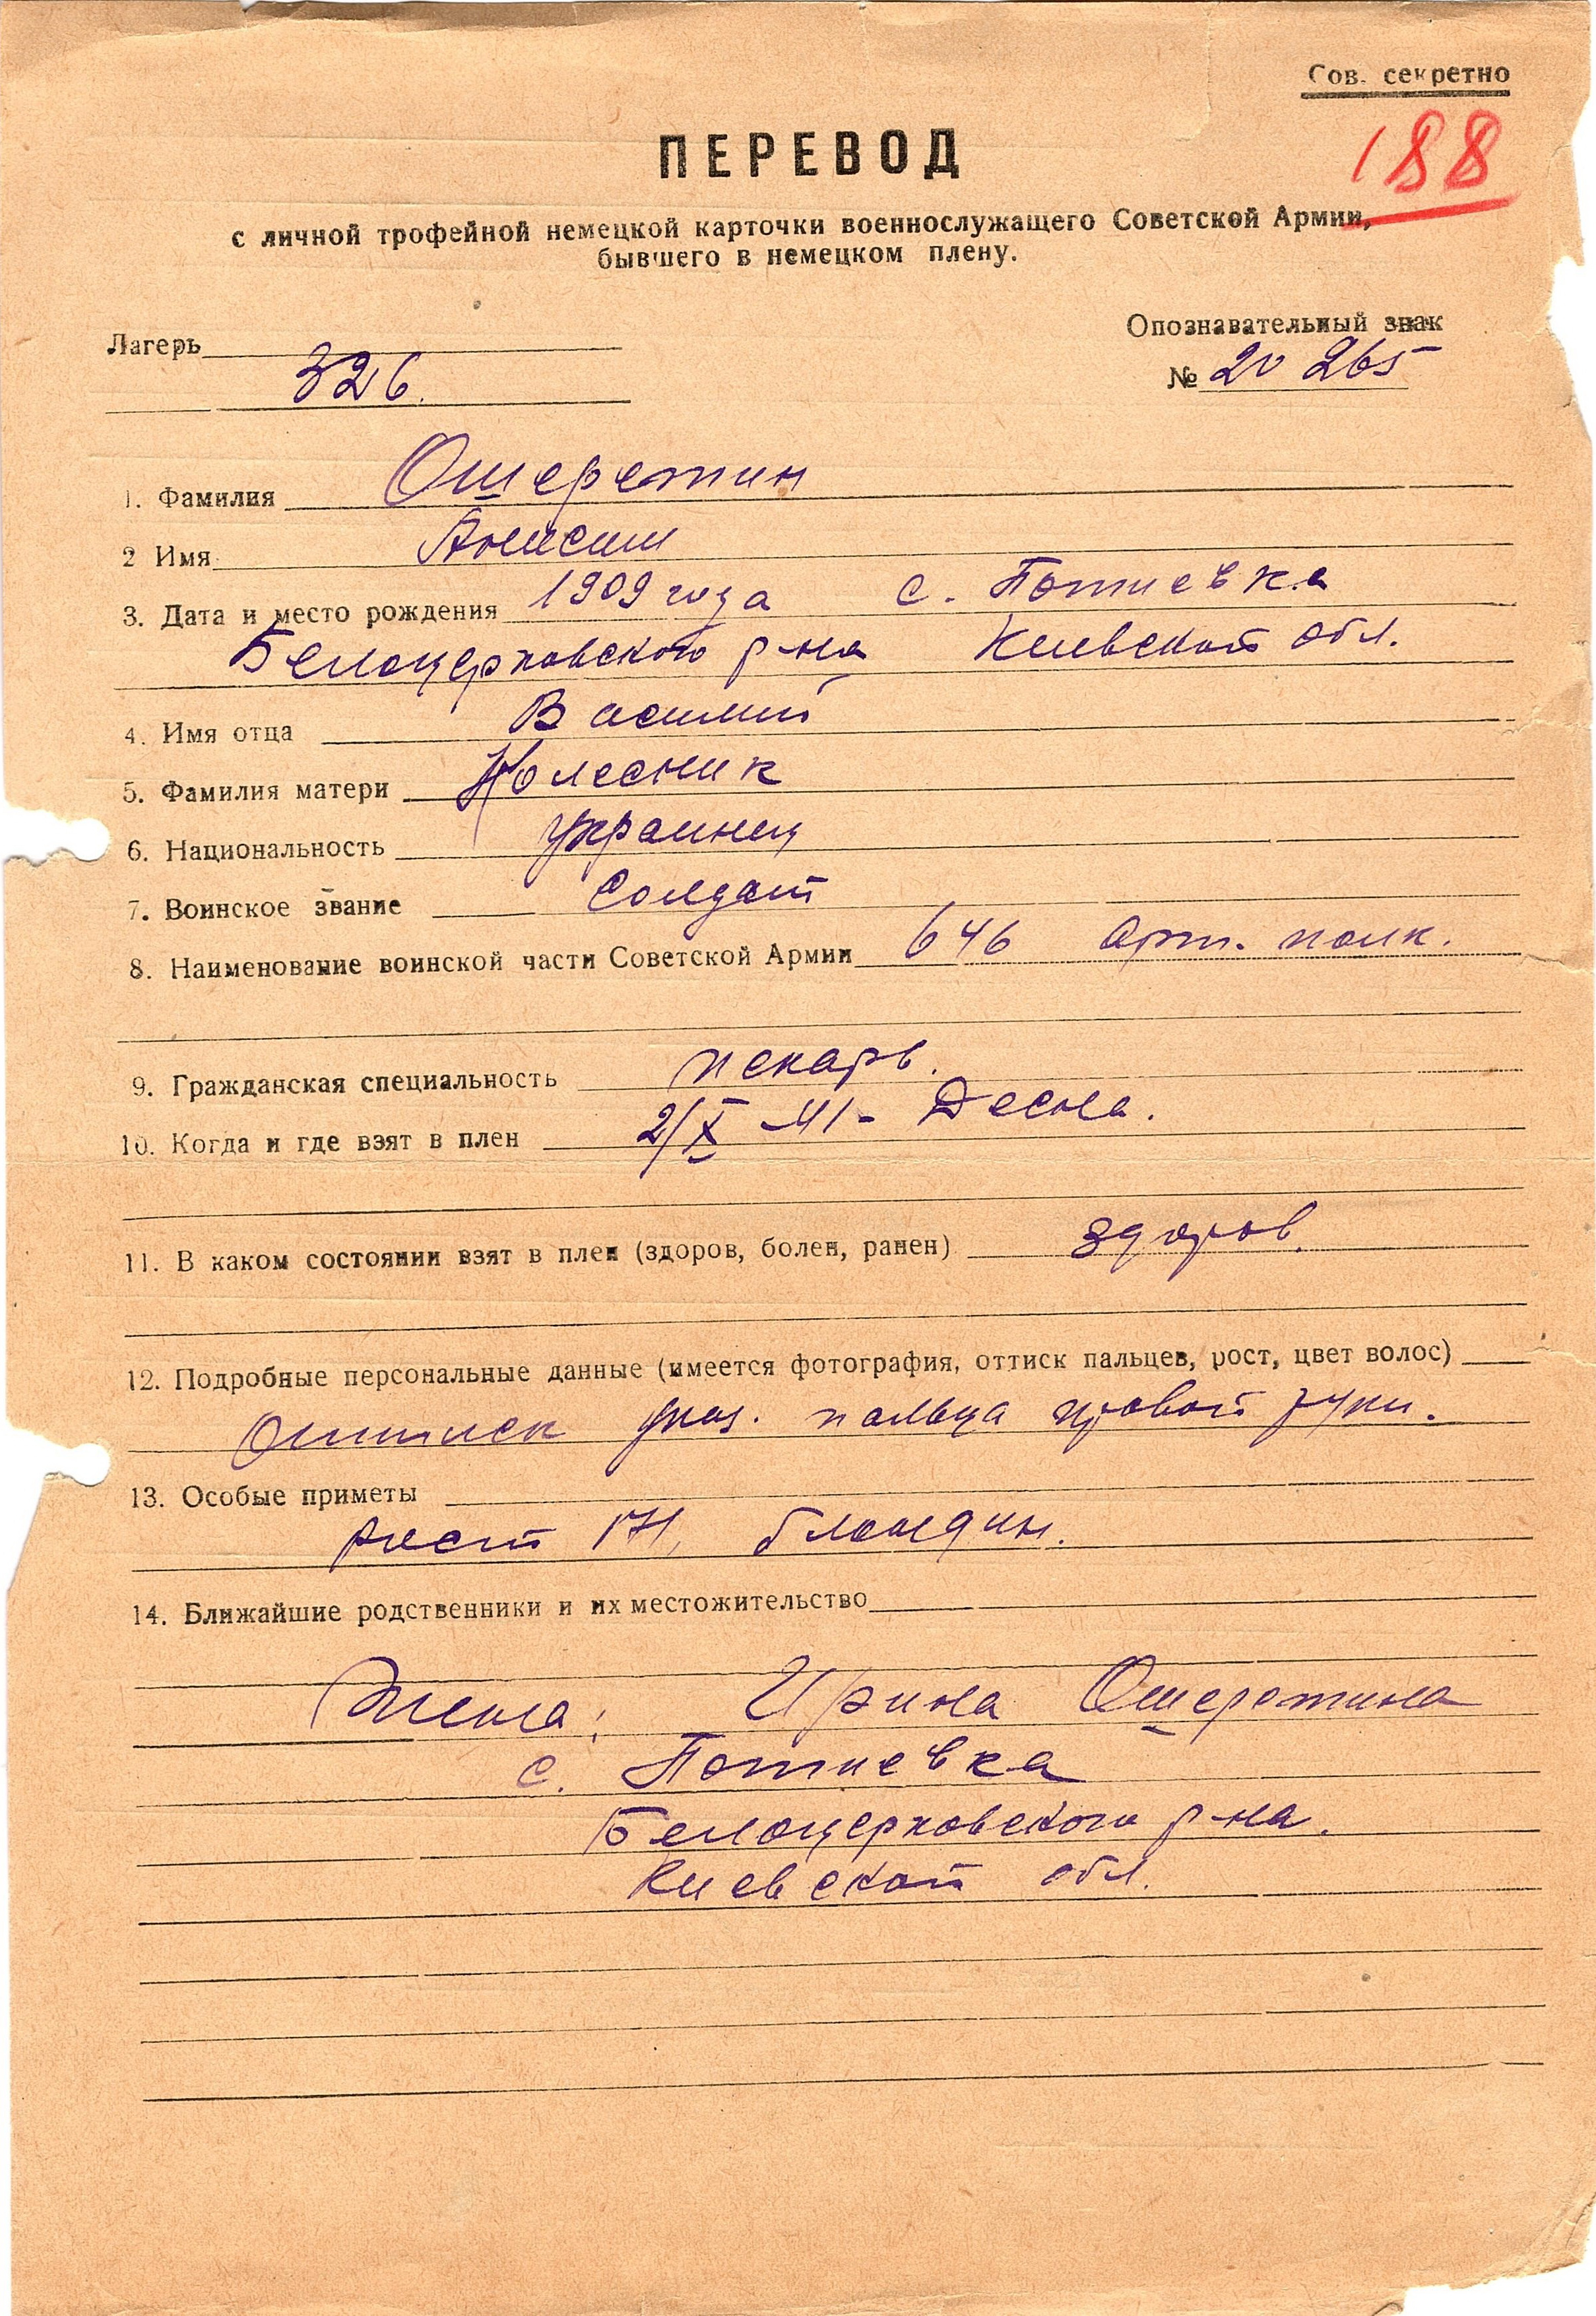 Сов. секретно
188
ПЕРЕВОД
с личной трофейной немецкой карточки военнослужащего Советской Армии,
бывшего в немецком плену.
Лагерь
326.
Опознавательный знак
№ 20 265
1. Фамилия Ошеретин
2 Имя Анисим
3. Дата и место рождения 1909 года с. Потиевка
Белоцерковского р-на Киевской обл.
4. Имя отца Василий
5. Фамилия матери Колесник
6. Национальность украинец
7. Воинское звание Солдат
8. Наименование воинской части Советской Армии 646 арт. полк.
9. Гражданская специальность пекарь.
10. Когда и где взят в плен 2/X-41- Десна.
11. В каком состоянии взят в плен (здоров, болен, ранен) здоров.
12. Подробные персональные данные (имеется фотография, оттиск пальцев, рост, цвет волос)
Оттиск указ. пальца правой руки.
13. Особые приметы
рост 171, блондин.
14. Ближайшие родственники и их местожительство
Жена: Ирина Ошеретина
с. Потиевка
Белоцерковского р-на.
Киевской обл.